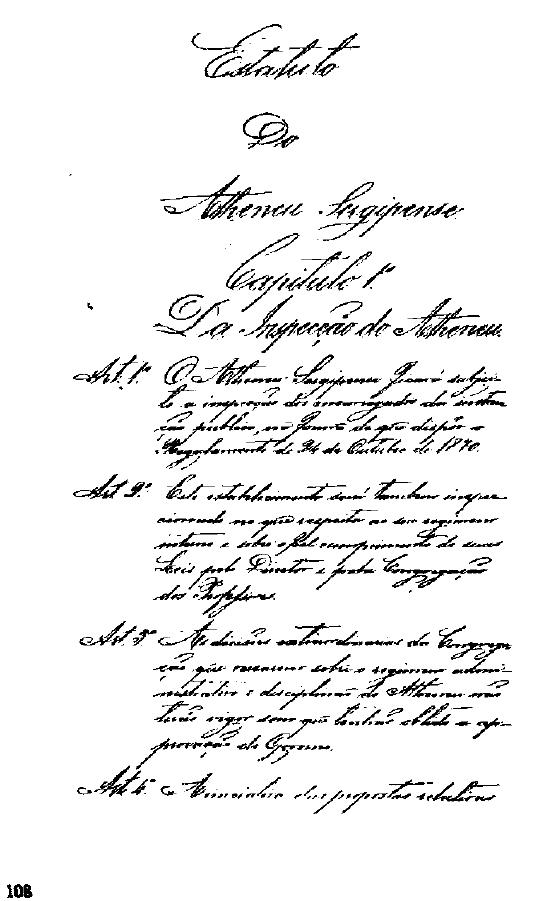 Estatuto
Do
Atheneu Sergipense
Capitulo 1º
Da Inspecção do Atheneu
Art. 1º O Atheneu Sergipense ficará subjei-
to a inspecção dos encarregados da instruc
ção publica, na forma do que dispõe o
Regulamento de 24 de Outubro de 1870.
Art 2º Este estabelecimento será tambem inspec
cionado no que respeita ao seu regimem
interno e sobre o fiel cumprimento de suas
Leis pelo Director e pela Congregação
dos Professores.
Art. 3º As decisões extraordinarias da Congrega
ção que versarem sobre o regimem admi-
nistrativo e disciplinar do Atheneu não
terão vigor sem que tenhão obtido a ap-
provação do Governo.
Art. 4º A iniciativa das propostas relativas
108